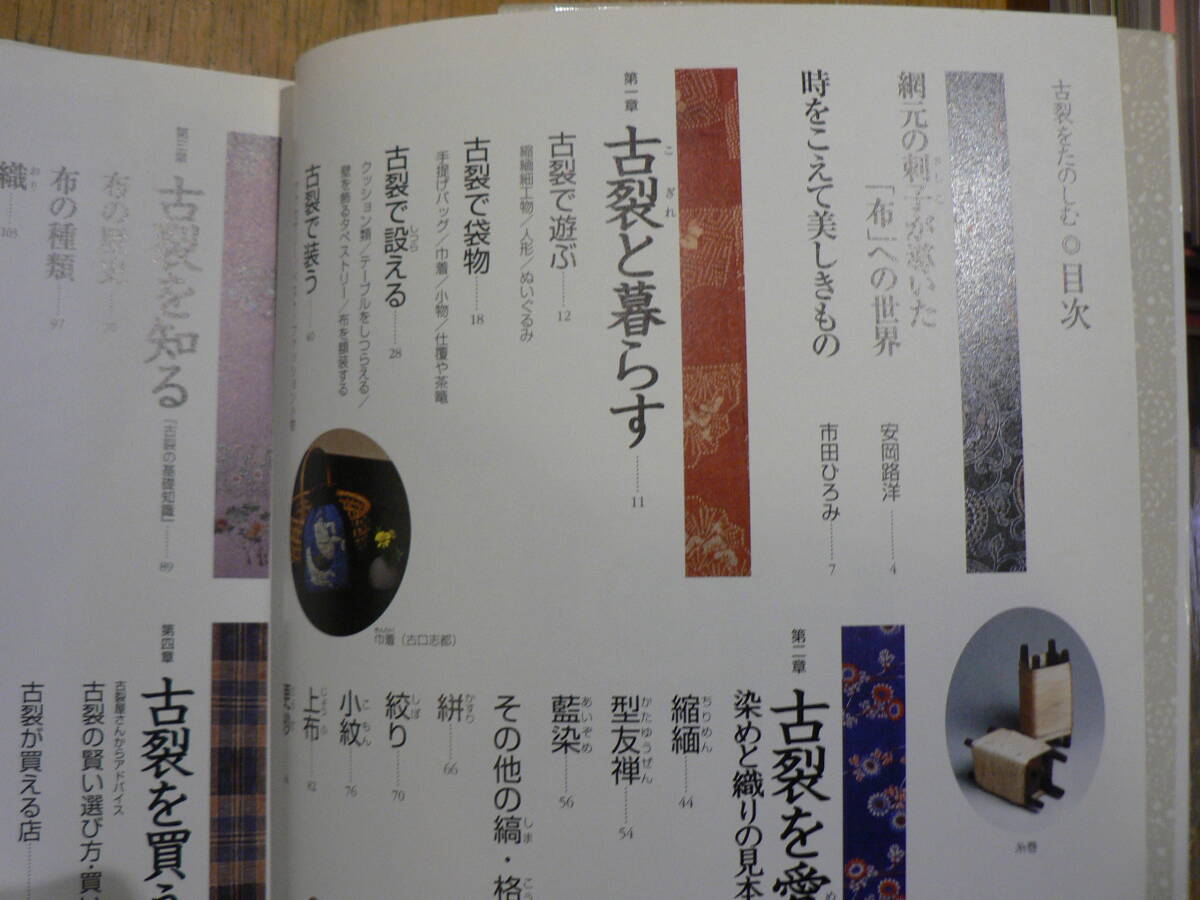 古裂をたのしむ◎目次
網元の刺子が導いた
「布」への世界
安岡路洋………4
時をこえて美しきもの
市田ひろみ………7
第一章
古裂と暮らす………11
こぎれ
古裂で遊ぶ………12
縮緬細工物／人形／ぬいぐるみ
古裂で袋物………18
手提げバッグ／巾着／小物／仕覆や茶籠
古裂で設える………28
しつら
クッション類／テーブルをしつらえる／
壁を飾るタペストリー／布を額装する
古裂で装う
巾着（古口志都）
糸巻
第二章
古裂を愛
染めと織りの見本
縮緬………44
ちりめん
型友禅………54
かたゆうぜん
藍染………56
あいぞめ
その他の縞・格
しま
絣………66
かすり
絞り………70
しぼ
小紋………76
こもん
上布………82
じょうふ
第三章
古裂を知る
「古裂の基礎知識」………89
布の種類………97
織………103
おり
第四章
古裂を買
古裂屋さんからアドバイス
古裂の賢い選び方・買い
古裂が買える店………